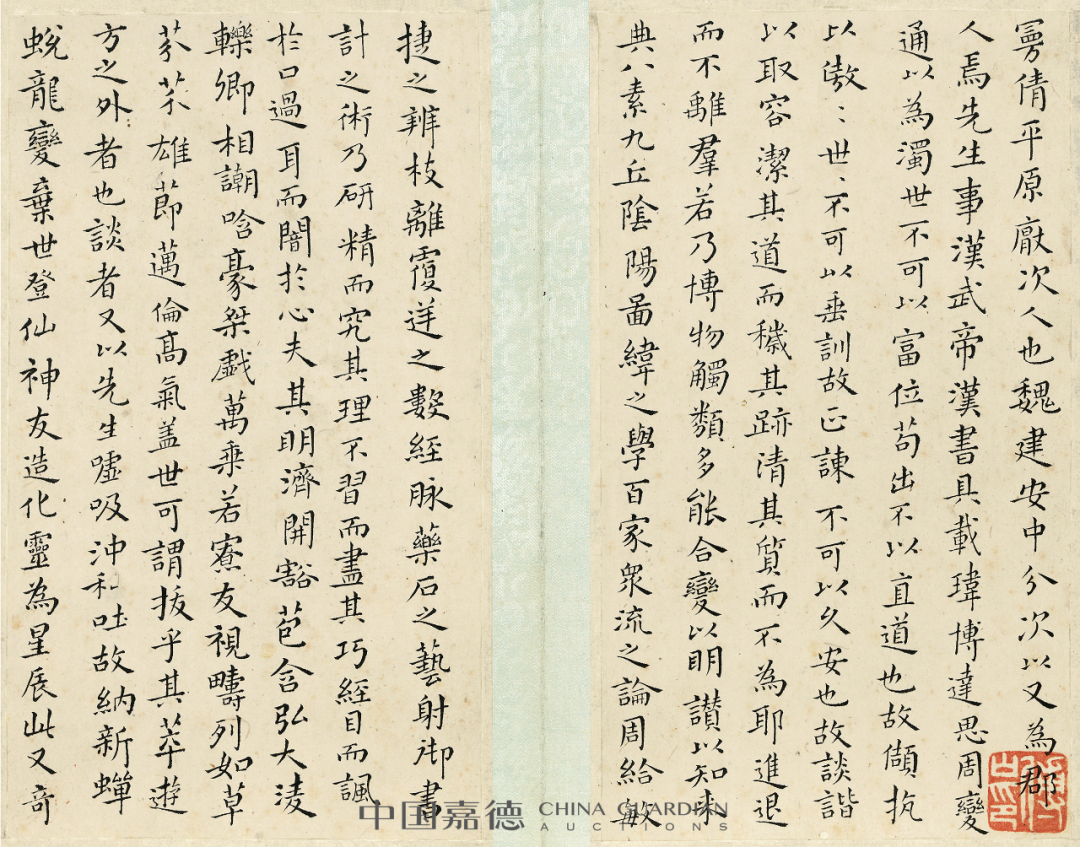 曼倩平原厭次人也魏建安中分次以又為郡
人焉先生事漢武帝漢書具載瑋博達思周變
通以為濁世不可以富位苟出不以直道也故傾抗
以傲〻世〻不可以垂訓故正諫不可以久安也故談諧
以取容潔其道而穢其跡清其質而不為耶進退
而不離羣若乃博物觸類多能合變以明讚以知来
典八素九丘陰陽啚緯之學百家衆流之論周給敏
捷之辨枝離覆逆之數經脉藥石之藝射御書
計之術乃研精而究其理不習而盡其巧經目而諷
於口過耳而闇於心夫其明濟開豁苞含弘大淩
轢卿相謿唅豪桀戯萬乗若寮友視疇列如草
芥雄莭邁倫高氣盖世可謂拔乎其萃遊
方之外者也談者又以先生嘘吸沖和吐故納新蟬
蛻龍變棄世登仙神友造化靈為星辰此又奇
中国嘉德 CHINA GUARDIAN
AUCTIONS